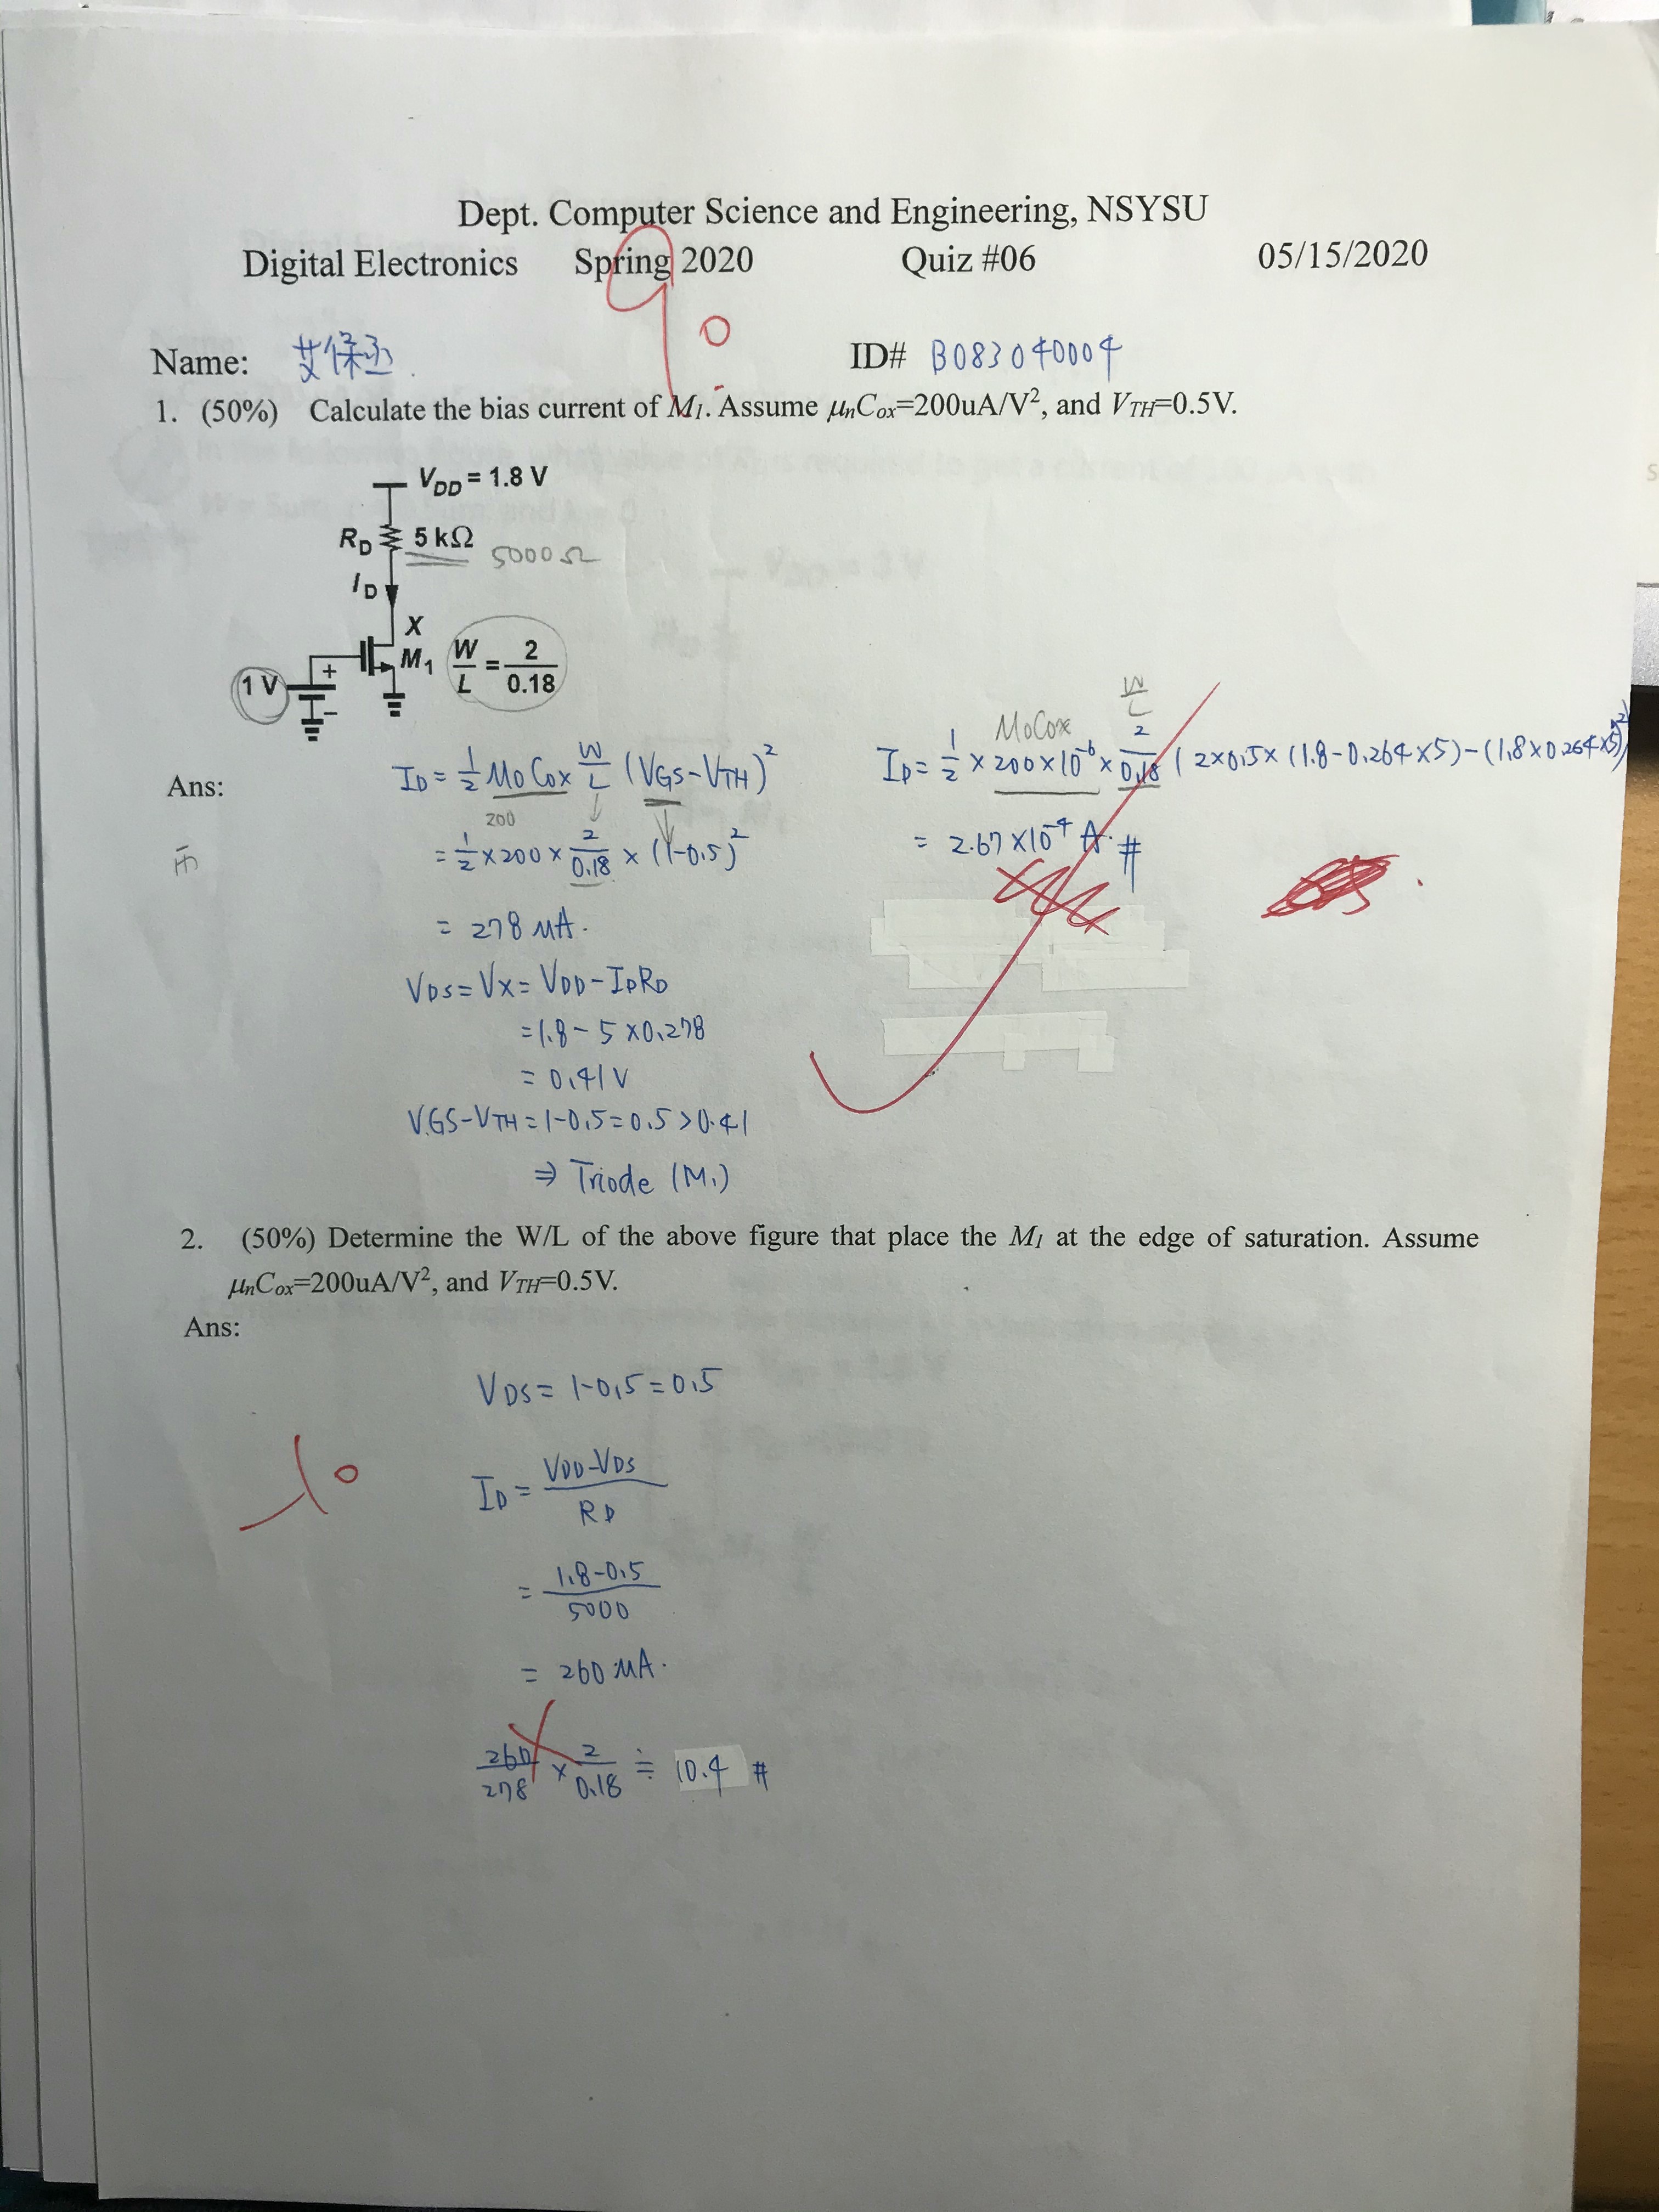 Dept. Computer Science and Engineering, NSYSU
Digital Electronics Spring 2020 Quiz #06 05/15/2020
90
Name: 艾保丞. ID# B083040004
1. (50%) Calculate the bias current of M1. Assume μnCox=200uA/V², and VTH=0.5V.
VDD = 1.8 V
RD 5 kΩ 5000Ω
ID
X
M1 W/L = 2/0.18
1 V + −
Ans:
ID = 1/2 MoCox W/L (VGS-VTH)²
200
= 1/2 × 200 × 2/0.18 × (1-0.5)²
= 278 μA.
VDS = VX = VDD - IDRD
= 1.8 - 5 × 0.278
= 0.41 V
VGS-VTH = 1-0.5 = 0.5 > 0.41
⇒ Triode (M1)
MoCox W/L
ID = 1/2 × 200×10⁻⁶ × 2/0.18 ( 2×0.5× (1.8-0.264×5) - (1.8×0.264×5)²
= 2.67 ×10⁻⁴ A. #
2. (50%) Determine the W/L of the above figure that place the M1 at the edge of saturation. Assume
μnCox=200uA/V², and VTH=0.5V.
Ans:
VDS = 1-0.5 = 0.5
-10
ID = VDD-VDS / RD
= 1.8-0.5 / 5000
= 260 μA.
260/278 × 2/0.18 ≒ 10.4 #